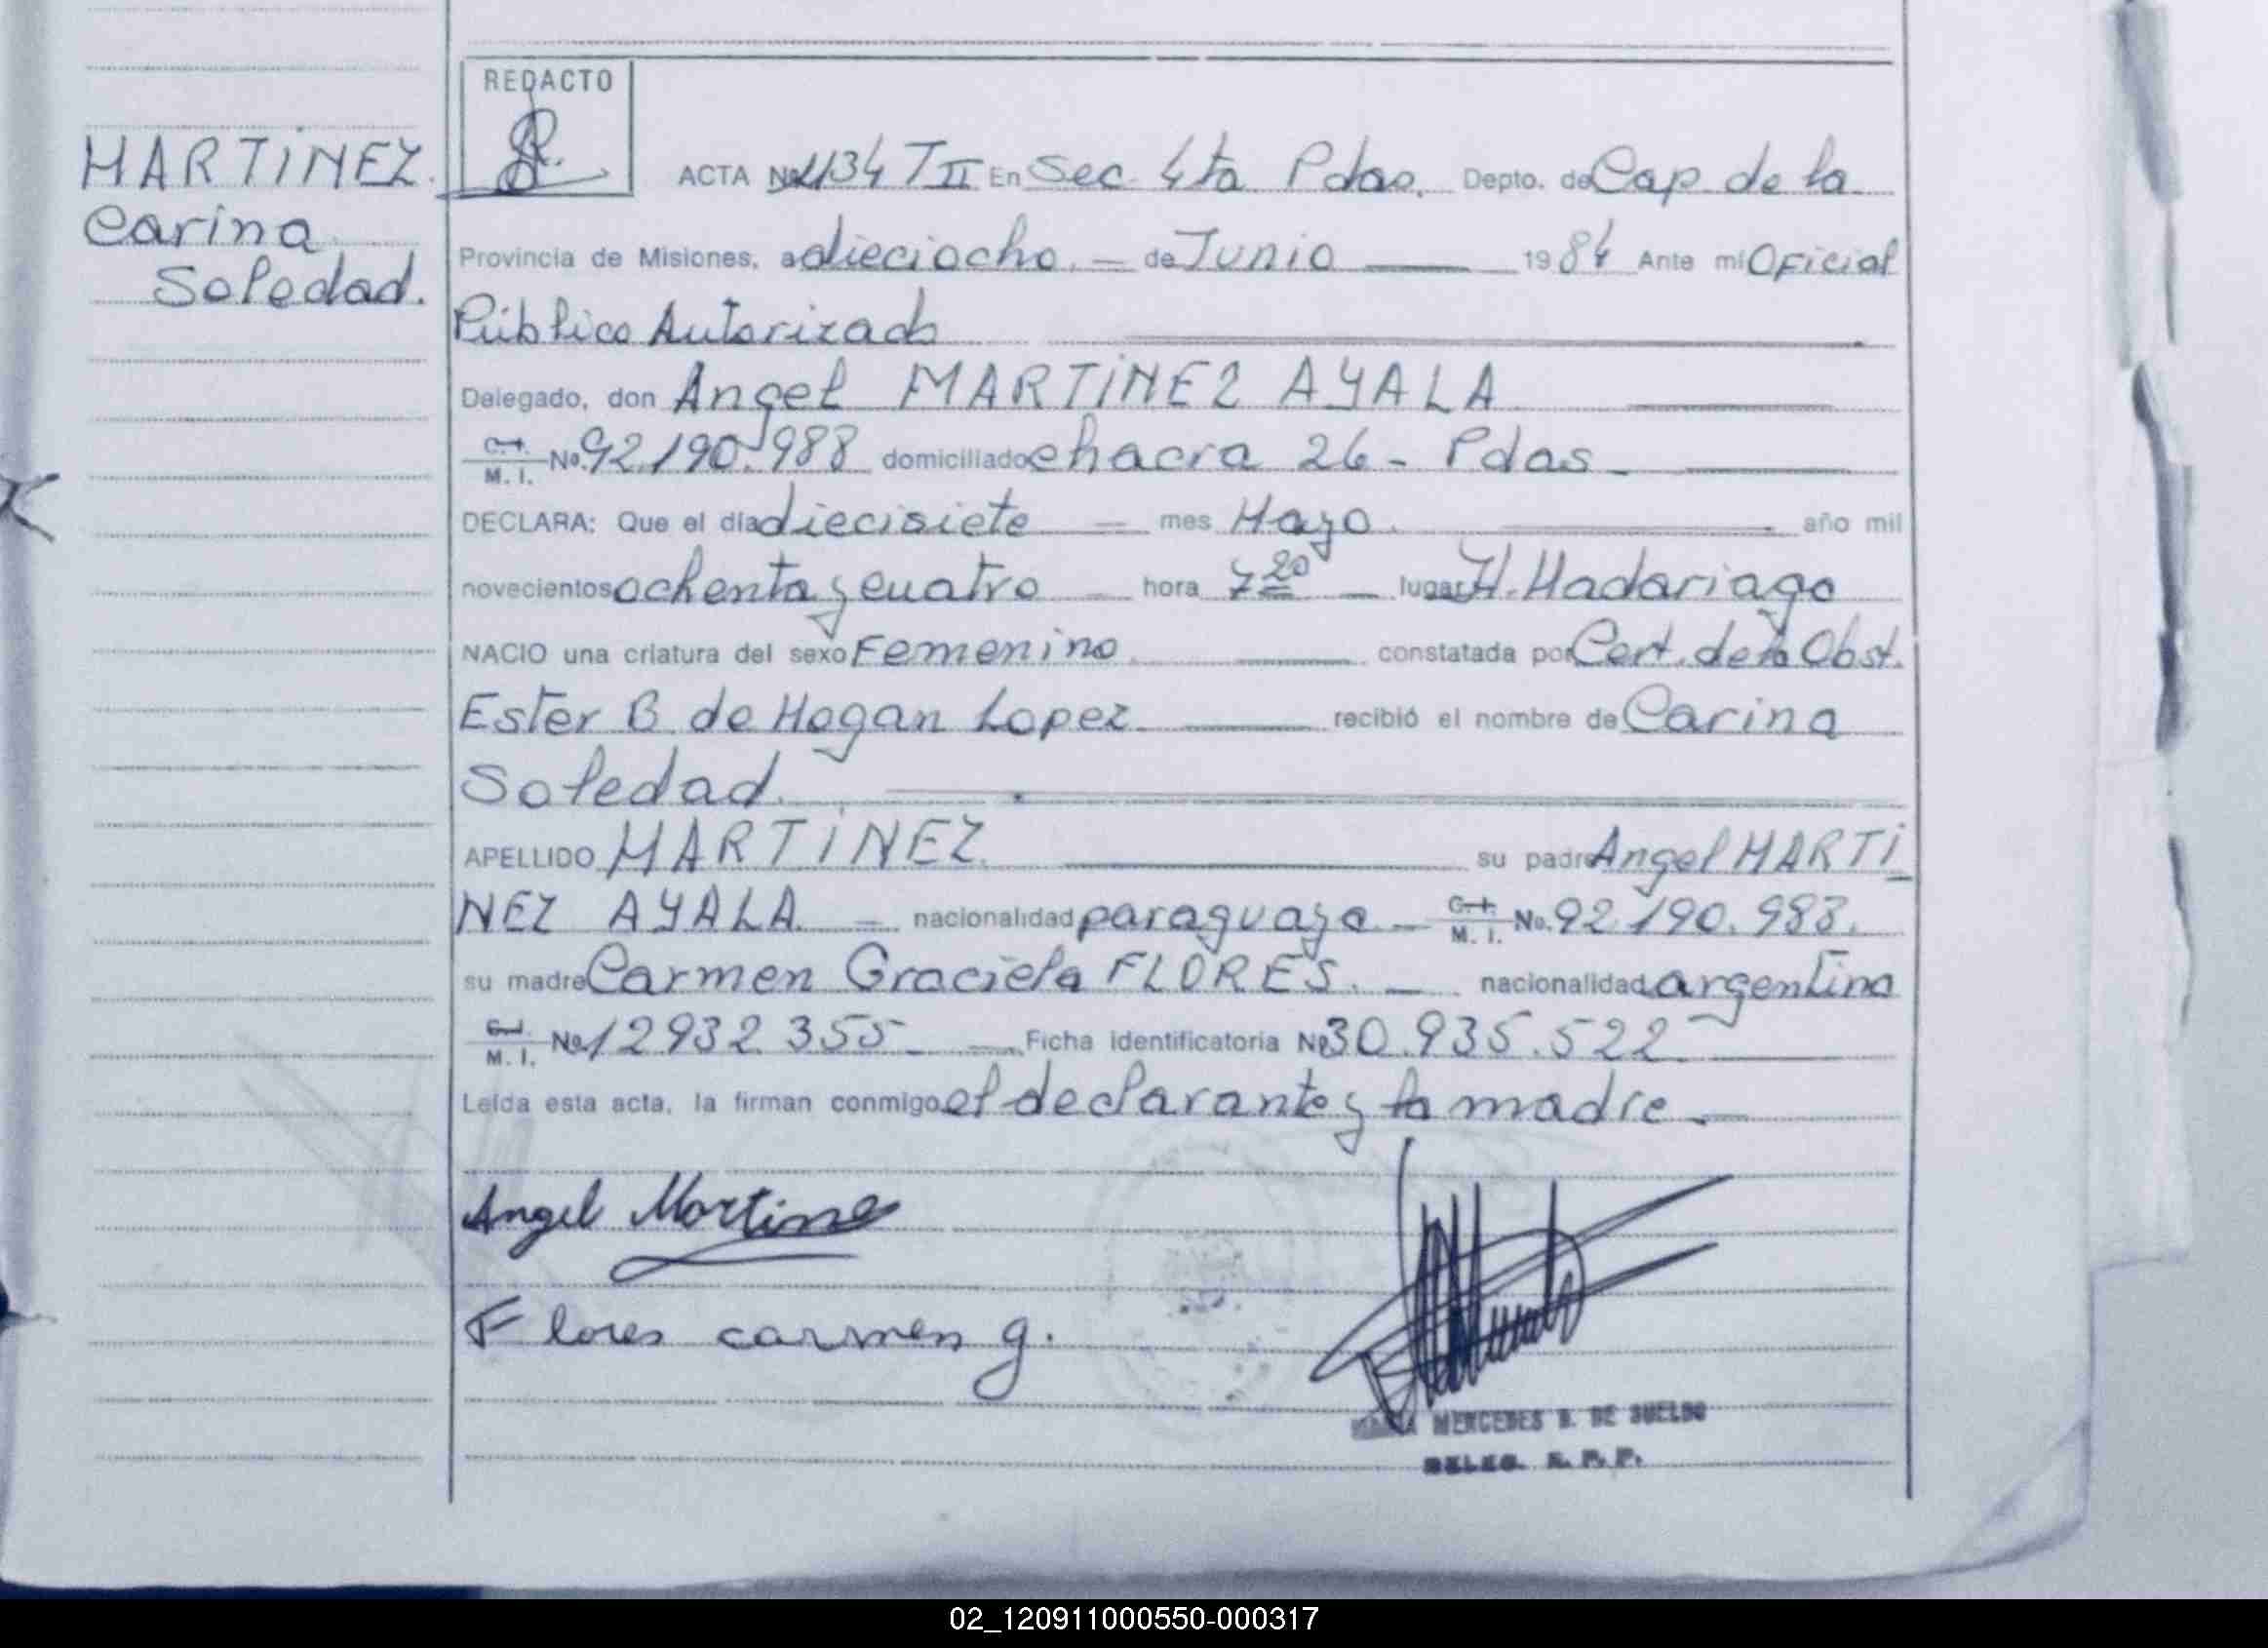 REDACTO
MARTINEZ
Carina
Soledad.
ACTA Nº 1134 T II En Sec. 4ta Pdas. Depto. de Cap. de la
Provincia de Misiones, a dieciocho. — de Junio — 1984 Ante mi Oficial
Público Autorizado
Delegado, don Angel MARTINEZ AYALA
C. I.
M. I. No. 92.190.988 domiciliado chacra 26 - Pdas.
DECLARA: Que el día diecisiete — mes Mayo. — año mil
novecientos ochenta y cuatro — hora 7 20 — lugar H. Madariaga
NACIO una criatura del sexo Femenino. — constatada por Cert. de la Obst.
Ester B. de Hogan Lopez. — recibió el nombre de Carina
Soledad.
APELLIDO MARTINEZ. — su padre Angel MARTI
NEZ AYALA. — nacionalidad paraguaya — C. I.
M. I. No. 92.190.983.
su madre Carmen Graciela FLORES. — nacionalidad argentina
C. I.
M. I. No. 12932.355 — Ficha identificatoria Nº 30.935.522
Leída esta acta, la firman conmigo el declarante y la madre. —
Angel Martinez
Flores carmen g.
MARIA MERCEDES B. DE SUELDO
DELEG. R. P. P.
02_120911000550-000317